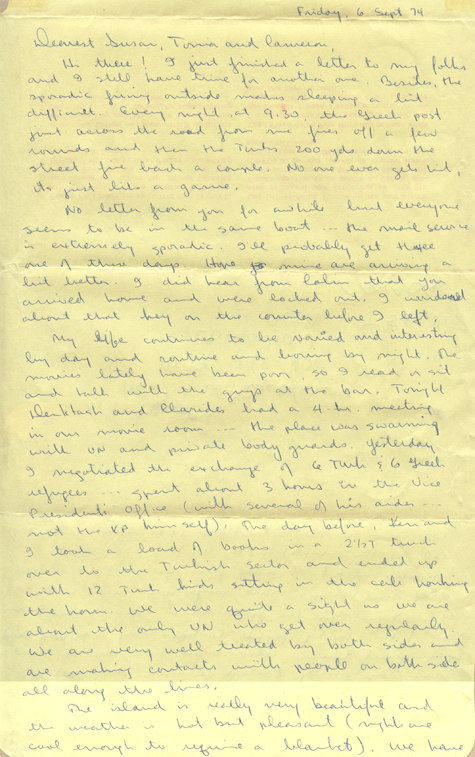 Friday, 6 Sept 74
Dearest Susan, Toma and Cameron,
Hi there! I just finished a letter to my folks
and I still have time for another one. Besides, the
sporadic firing outside makes sleeping a bit
difficult. Every night at 9.30, the Greek post
just across the road from me fires off a few
rounds and then the Turks 200 yds down the
street fire back a couple. No one ever gets hit,
its just like a game.
No letter from you for awhile but everyone
seems to be in the same boat ... the mail service
is extremely sporadic. I'll probably get three
one of these days. Hope mine are arriving a
bit better. I did hear from Colin that you
arrived home and were locked out. I wondered
about that key on the counter before I left.
My life continues to be varied and interesting
by day and routine and boring by night. The
movies lately have been poor so I read or sit
and talk with the guys at the bar. Tonight
Denktash and Clarides had a 4 hr. meeting
in our movie room ... the place was swarming
with UN and private body guards. Yesterday
I negotiated the exchange of 6 Turk & 6 Greek
refugees ... spent about 3 hours in the Vice
Presidents Office (with several of his aides ...
not the VP himself). The day before, Ken and
I took a load of books in a 2½T truck
over to the Turkish sector and ended up
with 12 Turk kids sitting in the cab honking
the horn. We were quite a sight as we are
about the only UN who get over regularly.
We are very well treated by both sides and
are making contacts with people on both side
all along the lines.
The island is really very beautiful and
the weather is hot but pleasant (nights are
cool enough to require a blanket). We have